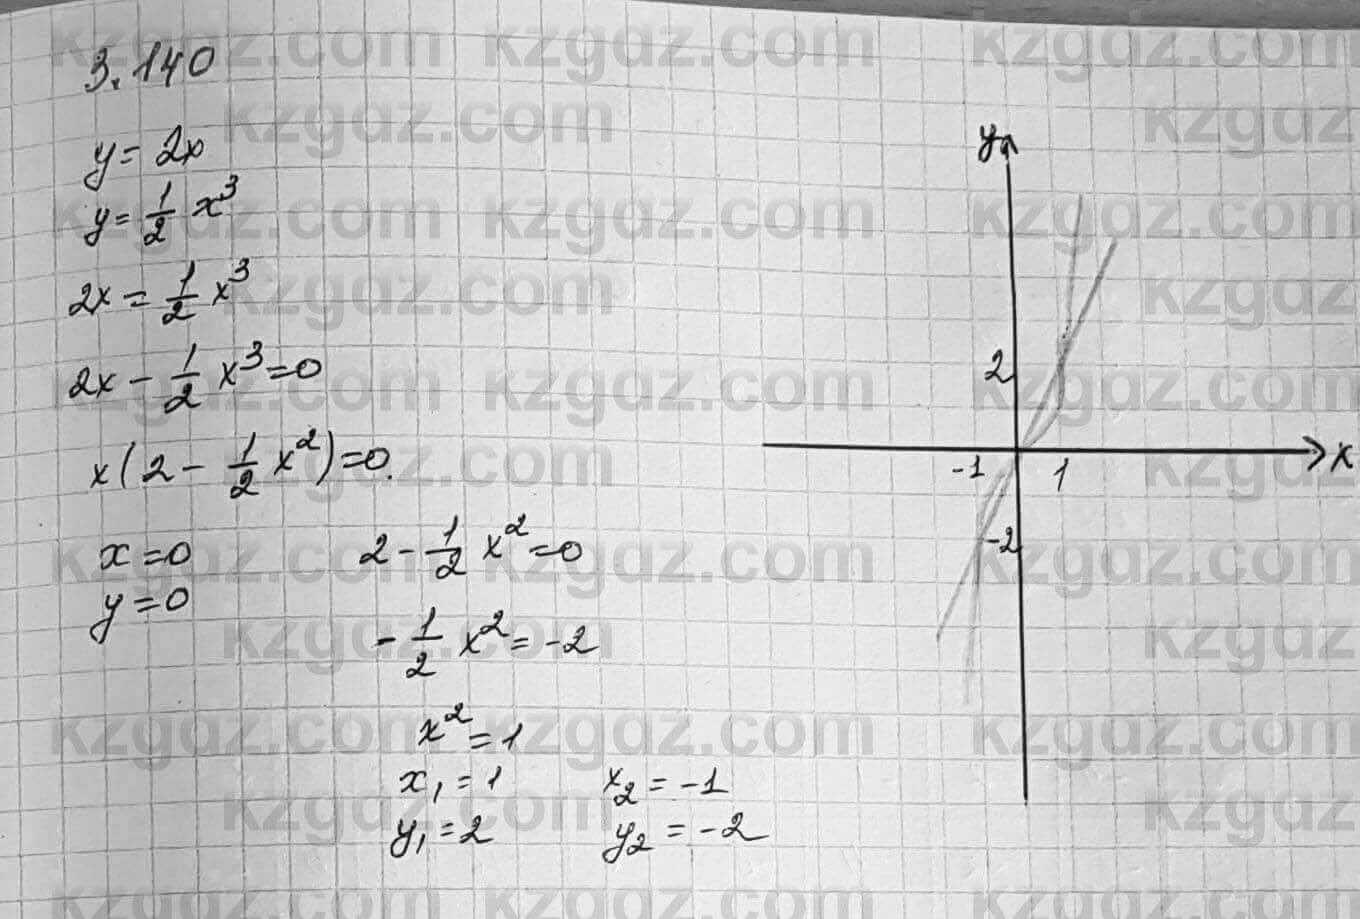 3.140
y = 2x
y = 1/2 x³
2x = 1/2 x³
2x - 1/2 x³ = 0
x(2 - 1/2 x²) = 0.
x = 0
y = 0
2 - 1/2 x² = 0
- 1/2 x² = -2
x² = 1
x₁ = 1 x₂ = -1
y₁ = 2 y₂ = -2
y
2
-1 1 x
-2
kzgdz.com kzgdz.com kzgdz.com
kzgdz.com kzgdz
kzgdz.com kzgdz.com kzgdz.com
kzgdz.com kzgdz
kzgdz.com kzgdz.com kzgdz.com
kzgdz.com kzgdz
kzgdz.com kzgdz.com kzgdz.com
kzgdz.com kzgdz
kzgdz.com kzgdz.com kzgdz.com
kzgdz.com kzgdz
kzgdz.com kzgdz.com kzgdz.com